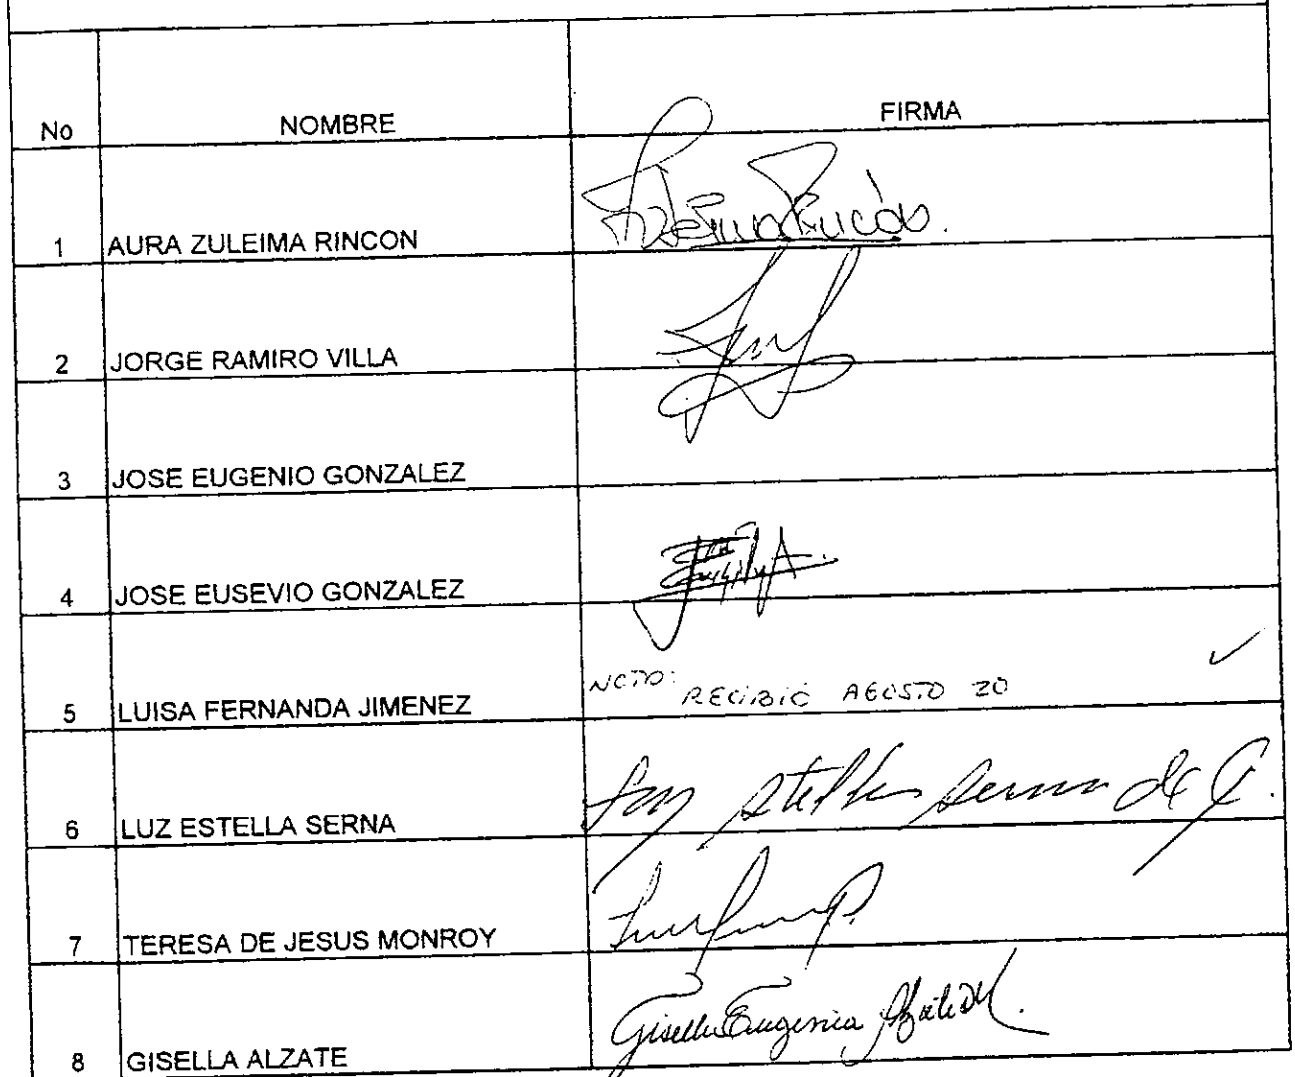 No NOMBRE FIRMA
1 AURA ZULEIMA RINCON
2 JORGE RAMIRO VILLA
3 JOSE EUGENIO GONZALEZ
4 JOSE EUSEVIO GONZALEZ
5 LUISA FERNANDA JIMENEZ RECIBIÓ AGOSTO 20
6 LUZ ESTELLA SERNA Luz Stella Serna de G.
7 TERESA DE JESUS MONROY
8 GISELLA ALZATE Gisella Eugenia